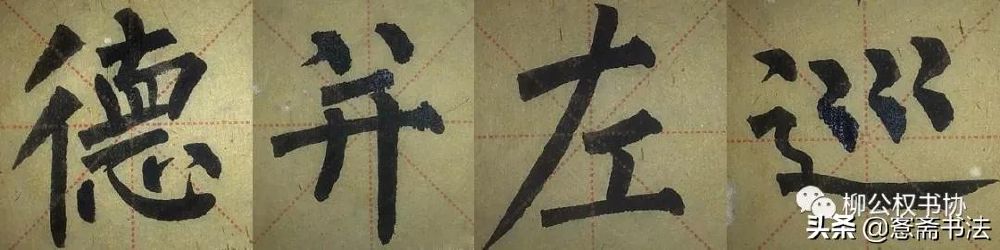 德并左巡
柳公权书协
头条@愙斋书法